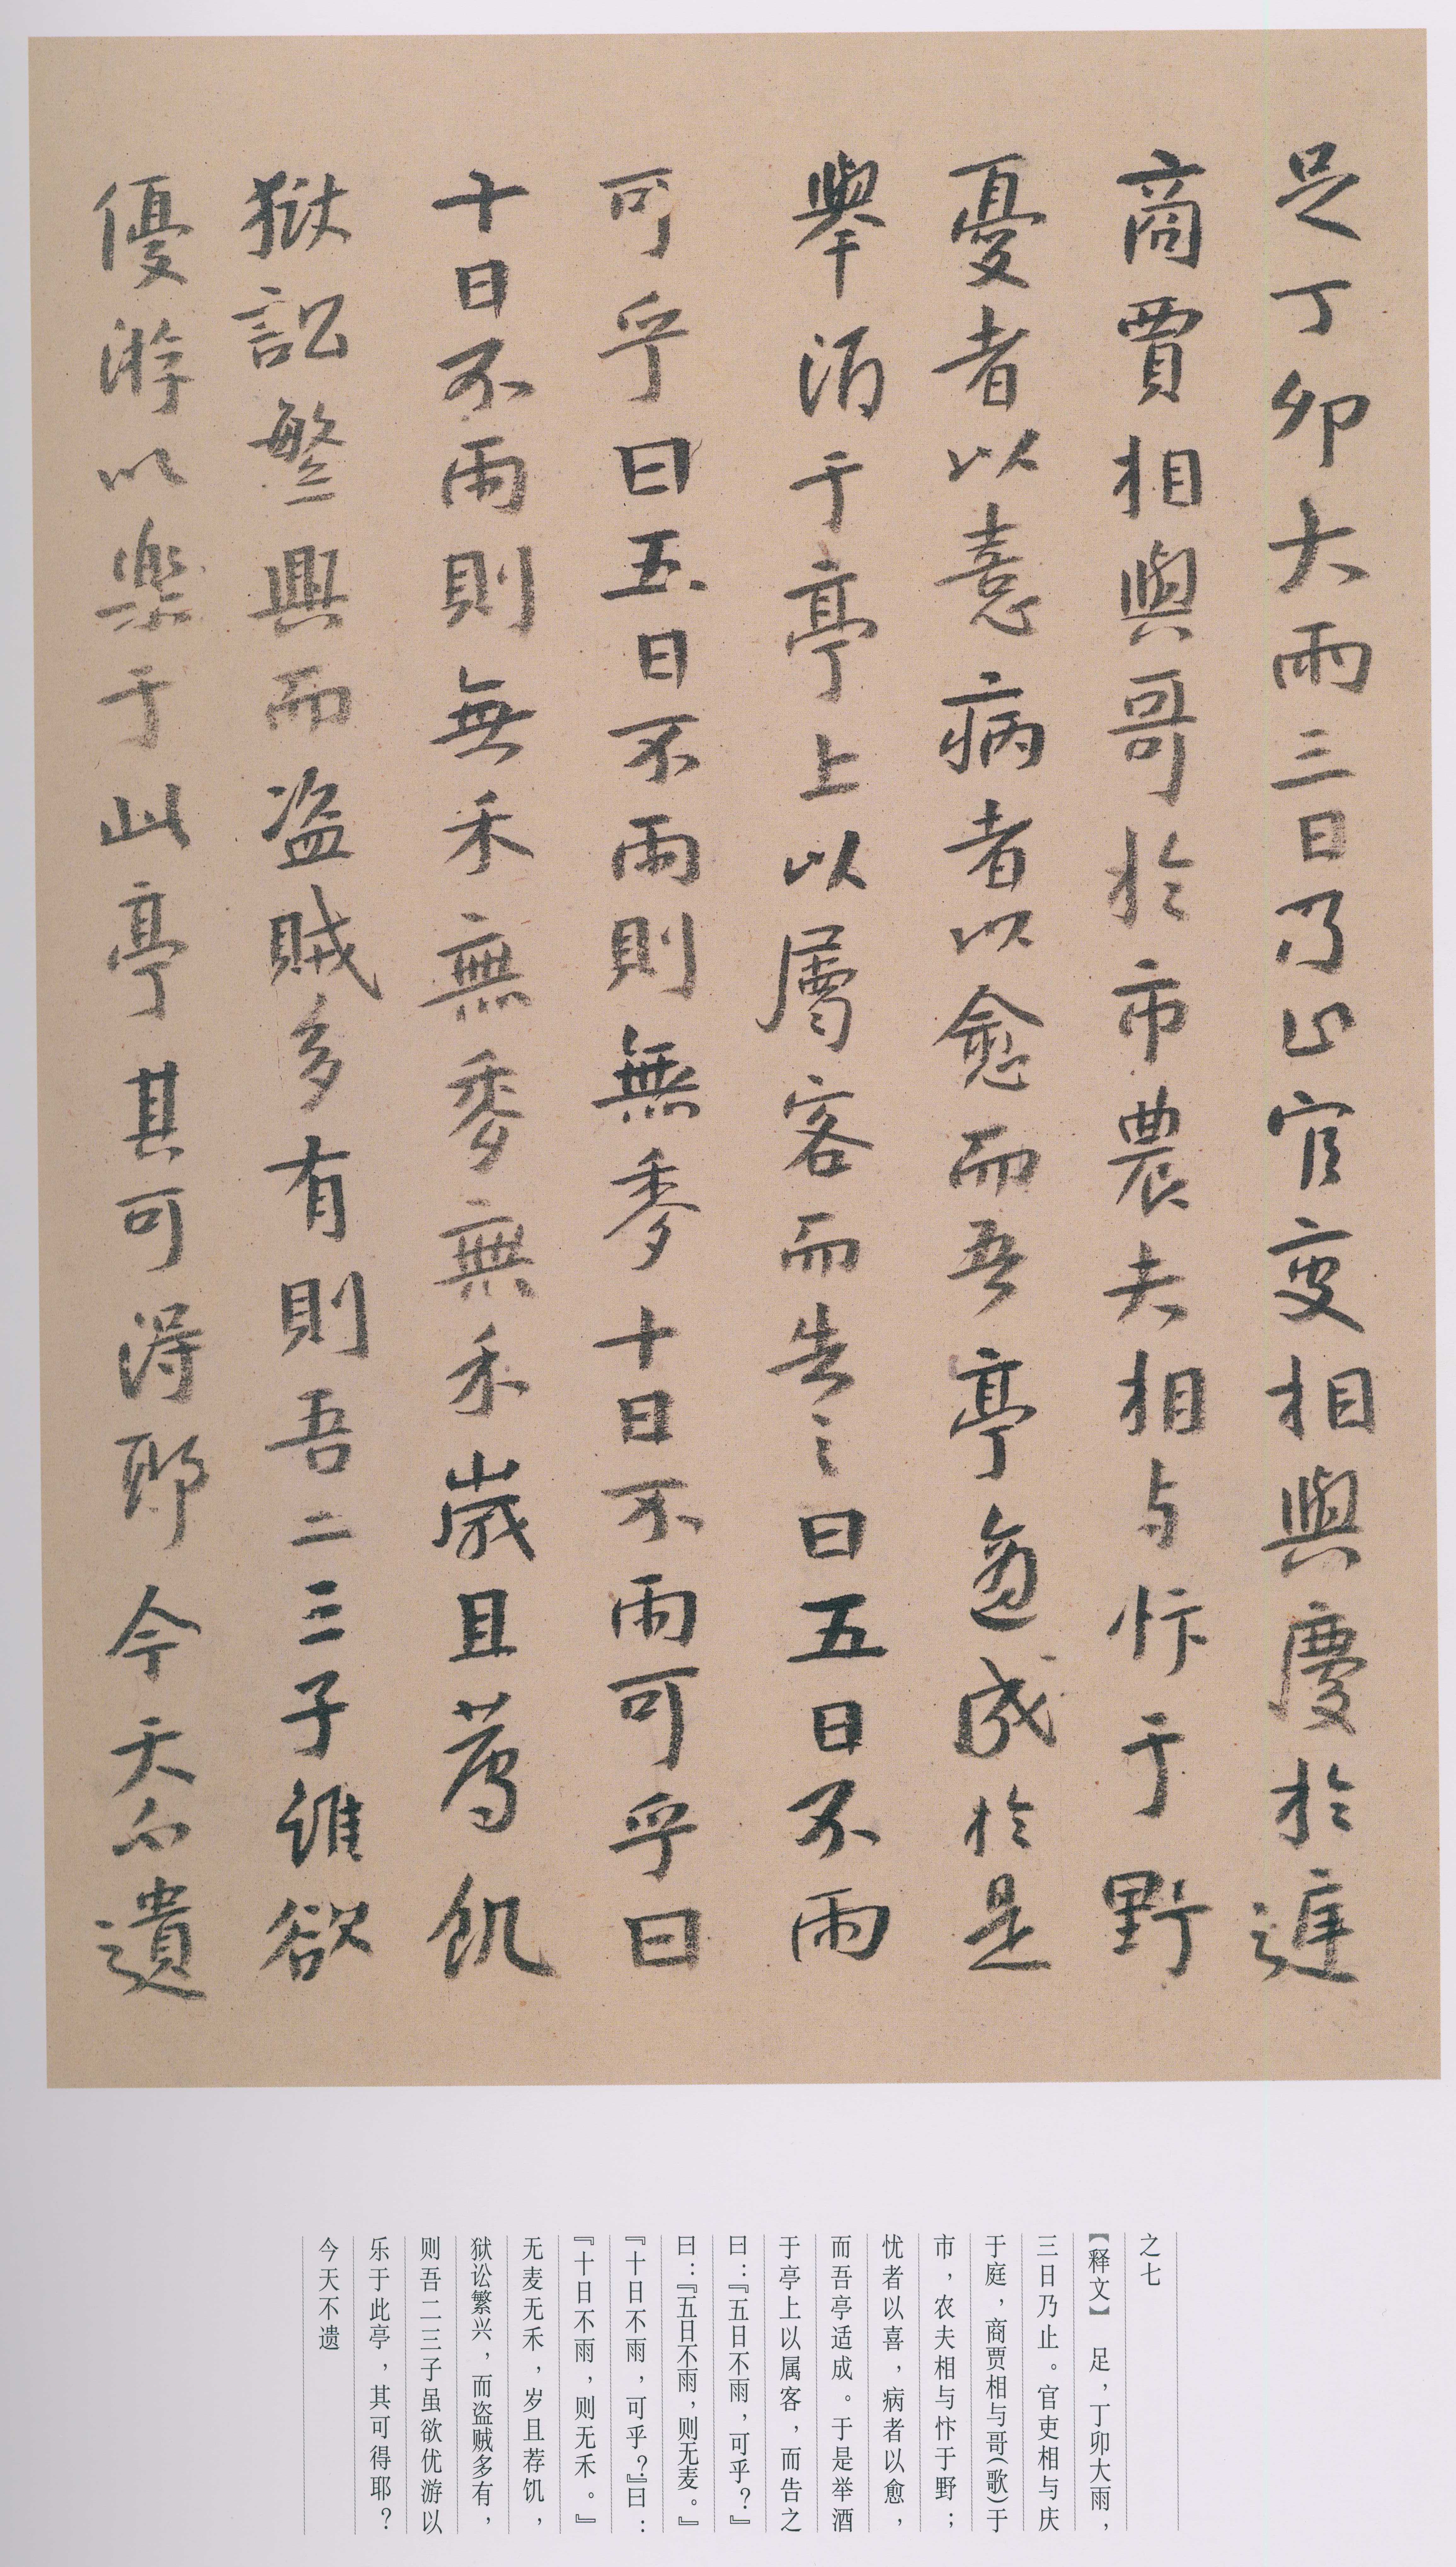 足丁卯大雨三日乃止官吏相與慶於逓
商賈相與哥於市農夫相与忭于野
憂者以憙病者以愈而吾亭適成於是
舉酒于亭上以属客而告之曰五日不雨
可乎曰五日不雨則無麥十日不雨可乎曰
十日不雨則無禾無麥無禾歲且荐飢
獄訟繁興而盗賊多有則吾二三子雖欲
優游以樂于此亭其可得耶今天不遺
之七
【释文】 足，丁卯大雨，
三日乃止。官吏相与庆
于庭，商贾相与哥（歌）于
市，农夫相与忭于野；
忧者以喜，病者以愈，
而吾亭适成。于是举酒
于亭上以属客，而告之
曰：『五日不雨，可乎？』
曰：『五日不雨，则无麦。』
『十日不雨，可乎？』曰：
『十日不雨，则无禾。』
无麦无禾，岁且荐饥，
狱讼繁兴，而盗贼多有，
则吾二三子虽欲优游以
乐于此亭，其可得耶？
今天不遗